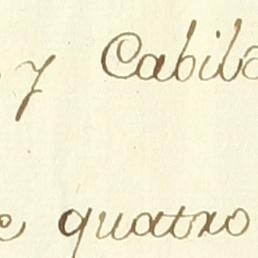 y Cabil
quatro